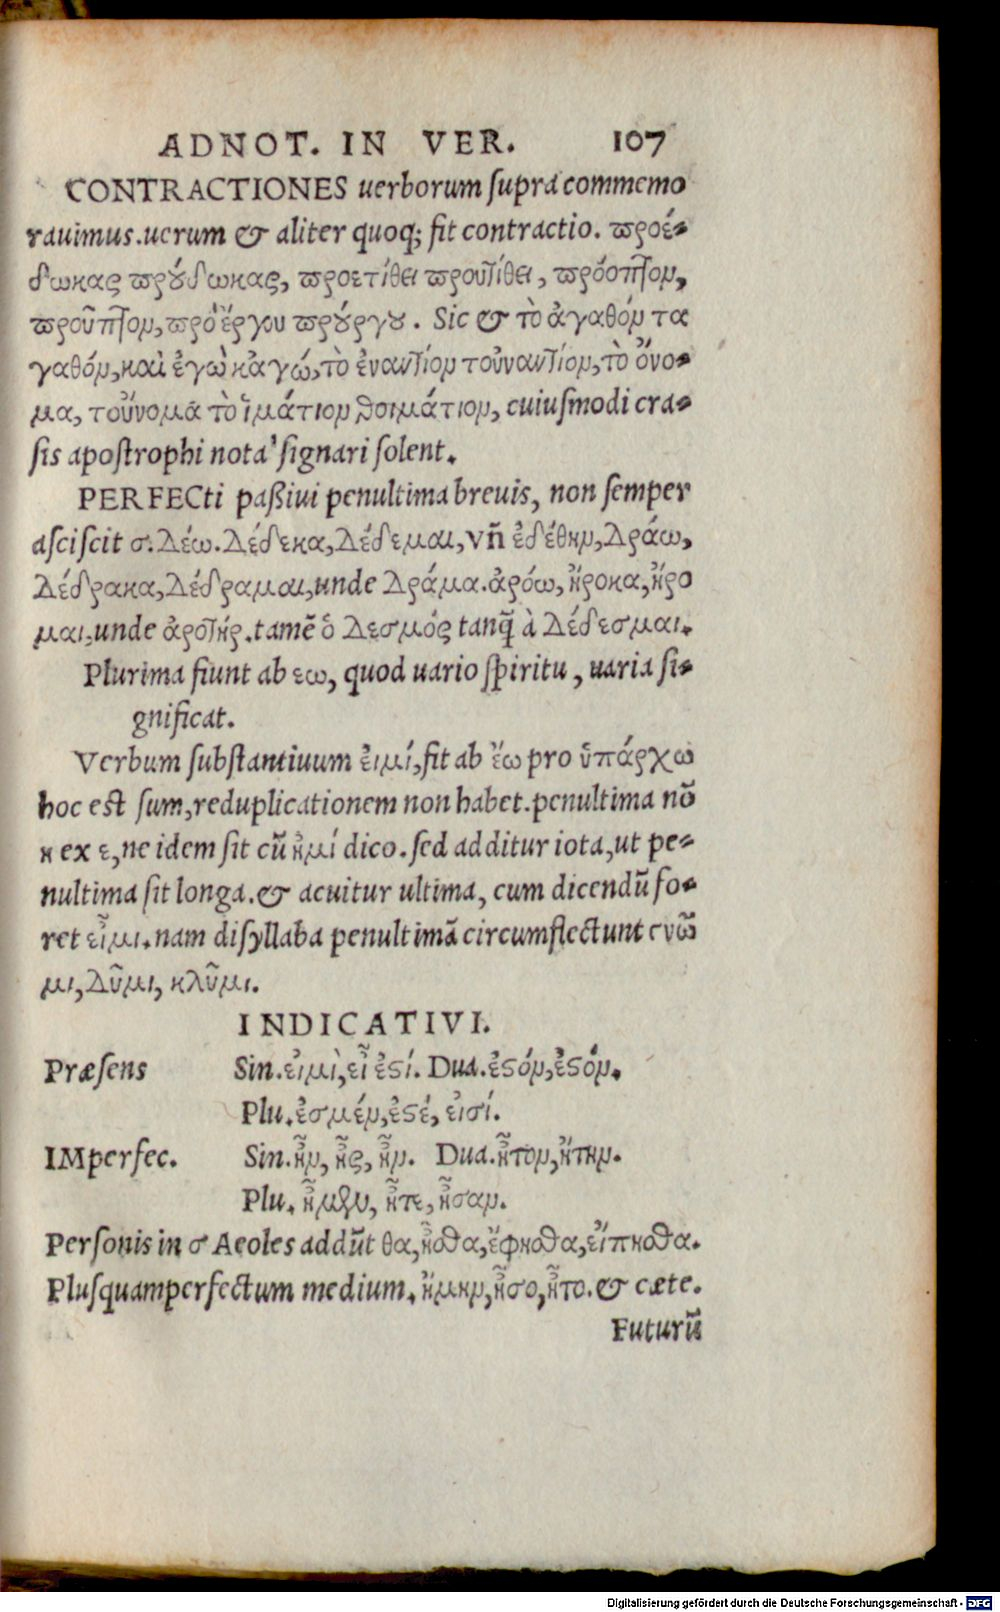 ADNOT. IN VER. 107
CONTRACTIONES uerborum supra commemo
rauimus. uerum & aliter quoq; fit contractio. προέ-
δωκας πρύδωκας, προετίθει προυτίθει, πρόοπτον,
προῦπτον, πρὸ ἔργου πρύργου. Sic & τὸ ἀγαθὸν τα
γαθόν, καὶ ἐγὼ κἀγώ, τὸ ἐναντίον τοὐναντίον, τὸ ὄνο-
μα, τοὔνομα τὸ ἱμάτιον θοιμάτιον, cuiusmodi cra-
sis apostrophi nota' signari solent.
PERFECti paßiui penultima breuis, non semper
asciscit σ. Δέω. Δέδεκα, Δέδεμαι, vñ ἐδέθην, Δράω,
Δέδρακα, Δέδραμαι, unde Δράμα. ἀρόω, ἤροκα, ἤρο
μαι, unde ἀροτήρ. tamē ὁ Δεσμός tanq̃ à Δέδεσμαι.
Plurima fiunt ab εω, quod uario spiritu, uaria si-
gnificat.
Verbum substantiuum εἰμί, fit ab ἔω pro ὑπάρχω
hoc est sum, reduplicationem non habet. penultima nō
η ex ε, ne idem sit cū ἠμί dico. sed additur iota, ut pe-
nultima sit longa. & acuitur ultima, cum dicendū fo-
ret εἶμι. nam disyllaba penultimā circumflectunt γνῶ
μι, Δῦμι, κλῦμι.
INDICATIVI.
Præsens Sin. εἰμὶ, εἶ ἐστί. Dua. ἐστόν, ἐστόν.
Plu. ἐσμέν, ἐστέ, εἰσί.
IMperfec. Sin. ἦν, ἦς, ἦν. Dua. ἦτον, ἤτην.
Plu. ἦμεν, ἦτε, ἦσαν.
Personis in σ Aeoles addūt θα, ἦσθα, ἔφησθα, εἴπησθα.
Plusquamperfectum medium. ἤμην, ἦσο, ἦτο. & cæte.
Futurū
Digitalisierung gefördert durch die Deutsche Forschungsgemeinschaft - DFG